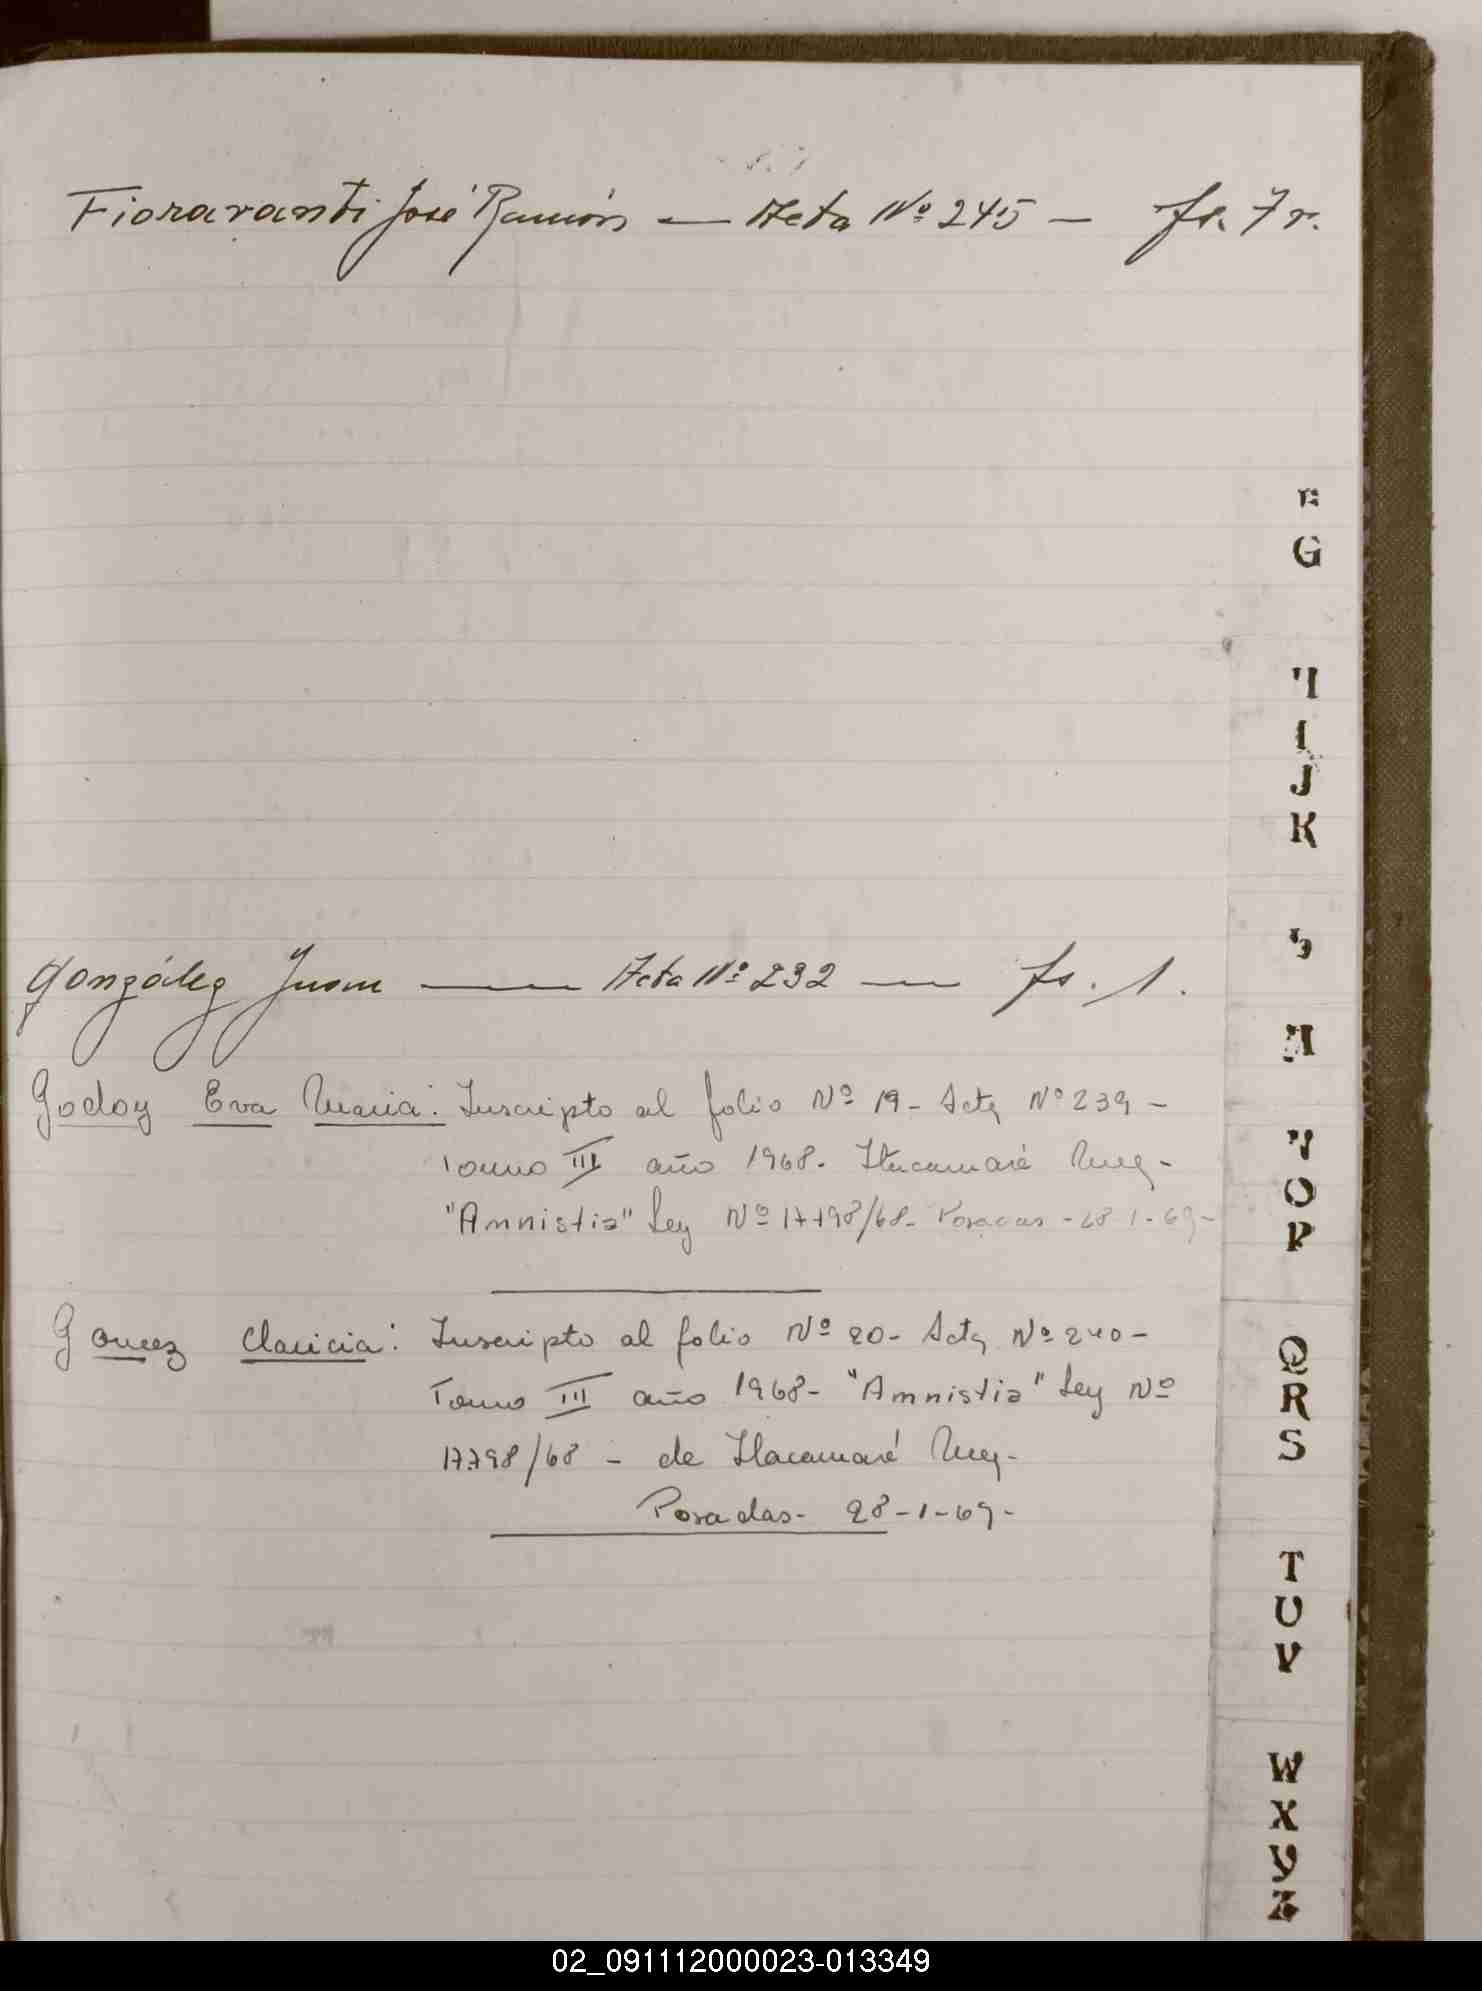 Fioravanti José Ramón — Acta Nº 245 — fs. 7 v.
F
G
H
I
J
K
L
M
N
O
P
Q
R
S
T
U
V
W
X
Y
Z
González Juan — Acta Nº 232 — fs. 1.
Godoy Eva Maria: Inscripto al folio Nº 19- Acta Nº 239-
Tomo III año 1968. Itacamaré Mnes-
"Amnistia" Ley Nº 17798/68- Posadas -28-1-69-
Gomez Claricia: Inscripto al folio Nº 20- Acta Nº 240-
Tomo III año 1968- "Amnistia" Ley Nº
17798/68 - de Itacamaré
Posadas- 28-1-69-
02_091112000023-013349